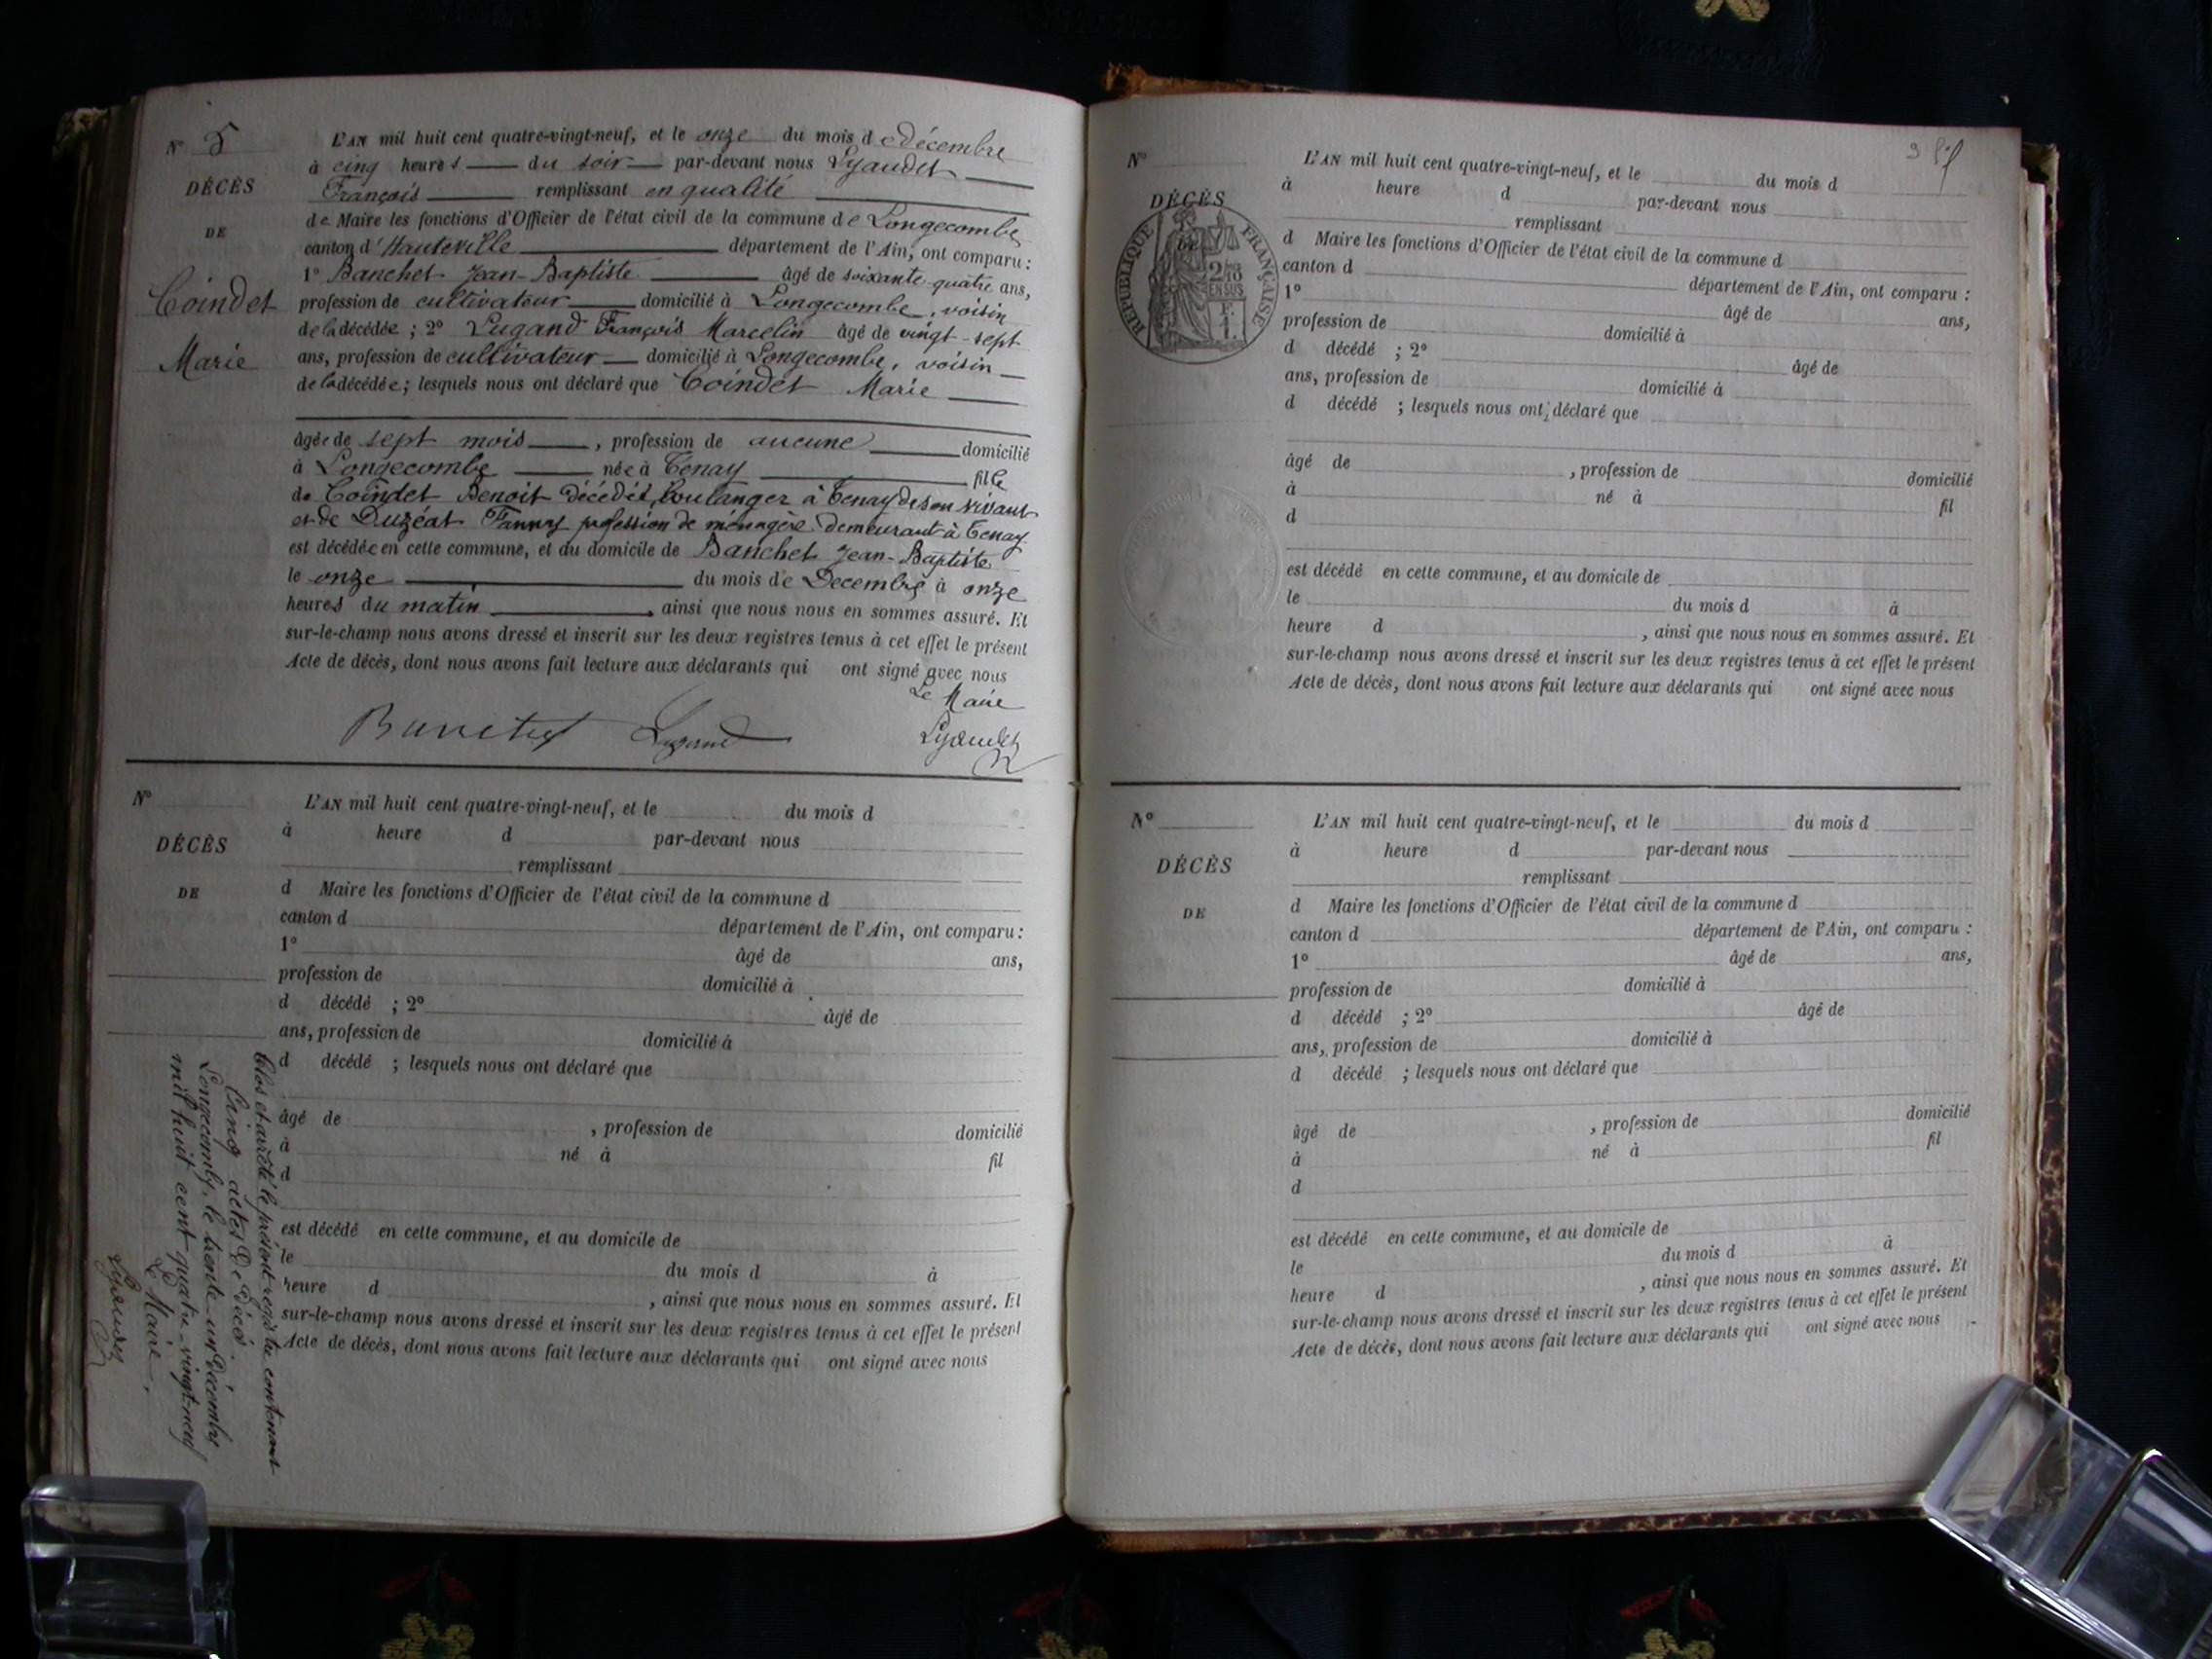 N° 5
DÉCÈS
DE
Coindet
Marie
L'AN mil huit cent quatre-vingt-neuf, et le onze du mois de Décembre
à cinq heures du soir par-devant nous Lyaudet
François remplissant en qualité
de Maire les fonctions d'Officier de l'état civil de la commune de Longecombe
canton d'Hauteville département de l'Ain, ont comparu :
1° Banchet Jean-Baptiste âgé de soixante-quatre ans,
profession de cultivateur domicilié à Longecombe, voisin
de la décédée ; 2° Lugand François Marcelin âgé de vingt-sept
ans, profession de cultivateur domicilié à Longecombe, voisin
de la décédée ; lesquels nous ont déclaré que Coindet Marie
âgée de sept mois, profession de aucune domicilié
à Longecombe née à Tenay fille
de Coindet Benoit décédé, boulanger à Tenay de son vivant
et de Duzéat Fanny profession de ménagère demeurant à Tenay
est décédée en cette commune, et au domicile de Banchet Jean-Baptiste
le onze du mois de Décembre à onze
heures du matin, ainsi que nous nous en sommes assuré. Et
sur-le-champ nous avons dressé et inscrit sur les deux registres tenus à cet effet le présent
Acte de décès, dont nous avons fait lecture aux déclarants qui ont signé avec nous
Le Maire
Banchet Lugand Lyaudet
N°
DÉCÈS
DE
L'AN mil huit cent quatre-vingt-neuf, et le du mois d
à heure d par-devant nous
remplissant
d Maire les fonctions d'Officier de l'état civil de la commune d
canton d département de l'Ain, ont comparu :
1° âgé de ans,
profession de domicilié à
d décédé ; 2° âgé de
ans, profession de domicilié à
d décédé ; lesquels nous ont déclaré que
âgé de , profession de domicilié
à né à fil
d
est décédé en cette commune, et au domicile de
le du mois d à
heure d , ainsi que nous nous en sommes assuré. Et
sur-le-champ nous avons dressé et inscrit sur les deux registres tenus à cet effet le présent
Acte de décès, dont nous avons fait lecture aux déclarants qui ont signé avec nous
Clos et arrêté le présent registre contenant
Cinq actes de décès.
Longecombe, le trente-un Décembre
mil huit cent quatre-vingt-neuf
Le Maire.
Lyaudet
N°
DÉCÈS
RÉPUBLIQUE FRANÇAISE
L'AN mil huit cent quatre-vingt-neuf, et le du mois d
à heure d par-devant nous
remplissant
d Maire les fonctions d'Officier de l'état civil de la commune d
canton d département de l'Ain, ont comparu :
1° âgé de ans,
profession de domicilié à
d décédé ; 2° âgé de
ans, profession de domicilié à
d décédé ; lesquels nous ont déclaré que
âgé de , profession de domicilié
à né à fil
d
est décédé en cette commune, et au domicile de
le du mois d à
heure d , ainsi que nous nous en sommes assuré. Et
sur-le-champ nous avons dressé et inscrit sur les deux registres tenus à cet effet le présent
Acte de décès, dont nous avons fait lecture aux déclarants qui ont signé avec nous
N°
DÉCÈS
DE
L'AN mil huit cent quatre-vingt-neuf, et le du mois d
à heure d par-devant nous
remplissant
d Maire les fonctions d'Officier de l'état civil de la commune d
canton d département de l'Ain, ont comparu :
1° âgé de ans,
profession de domicilié à
d décédé ; 2° âgé de
ans, profession de domicilié à
d décédé ; lesquels nous ont déclaré que
âgé de , profession de domicilié
à né à fil
d
est décédé en cette commune, et au domicile de
le du mois d à
heure d , ainsi que nous nous en sommes assuré. Et
sur-le-champ nous avons dressé et inscrit sur les deux registres tenus à cet effet le présent
Acte de décès, dont nous avons fait lecture aux déclarants qui ont signé avec nous